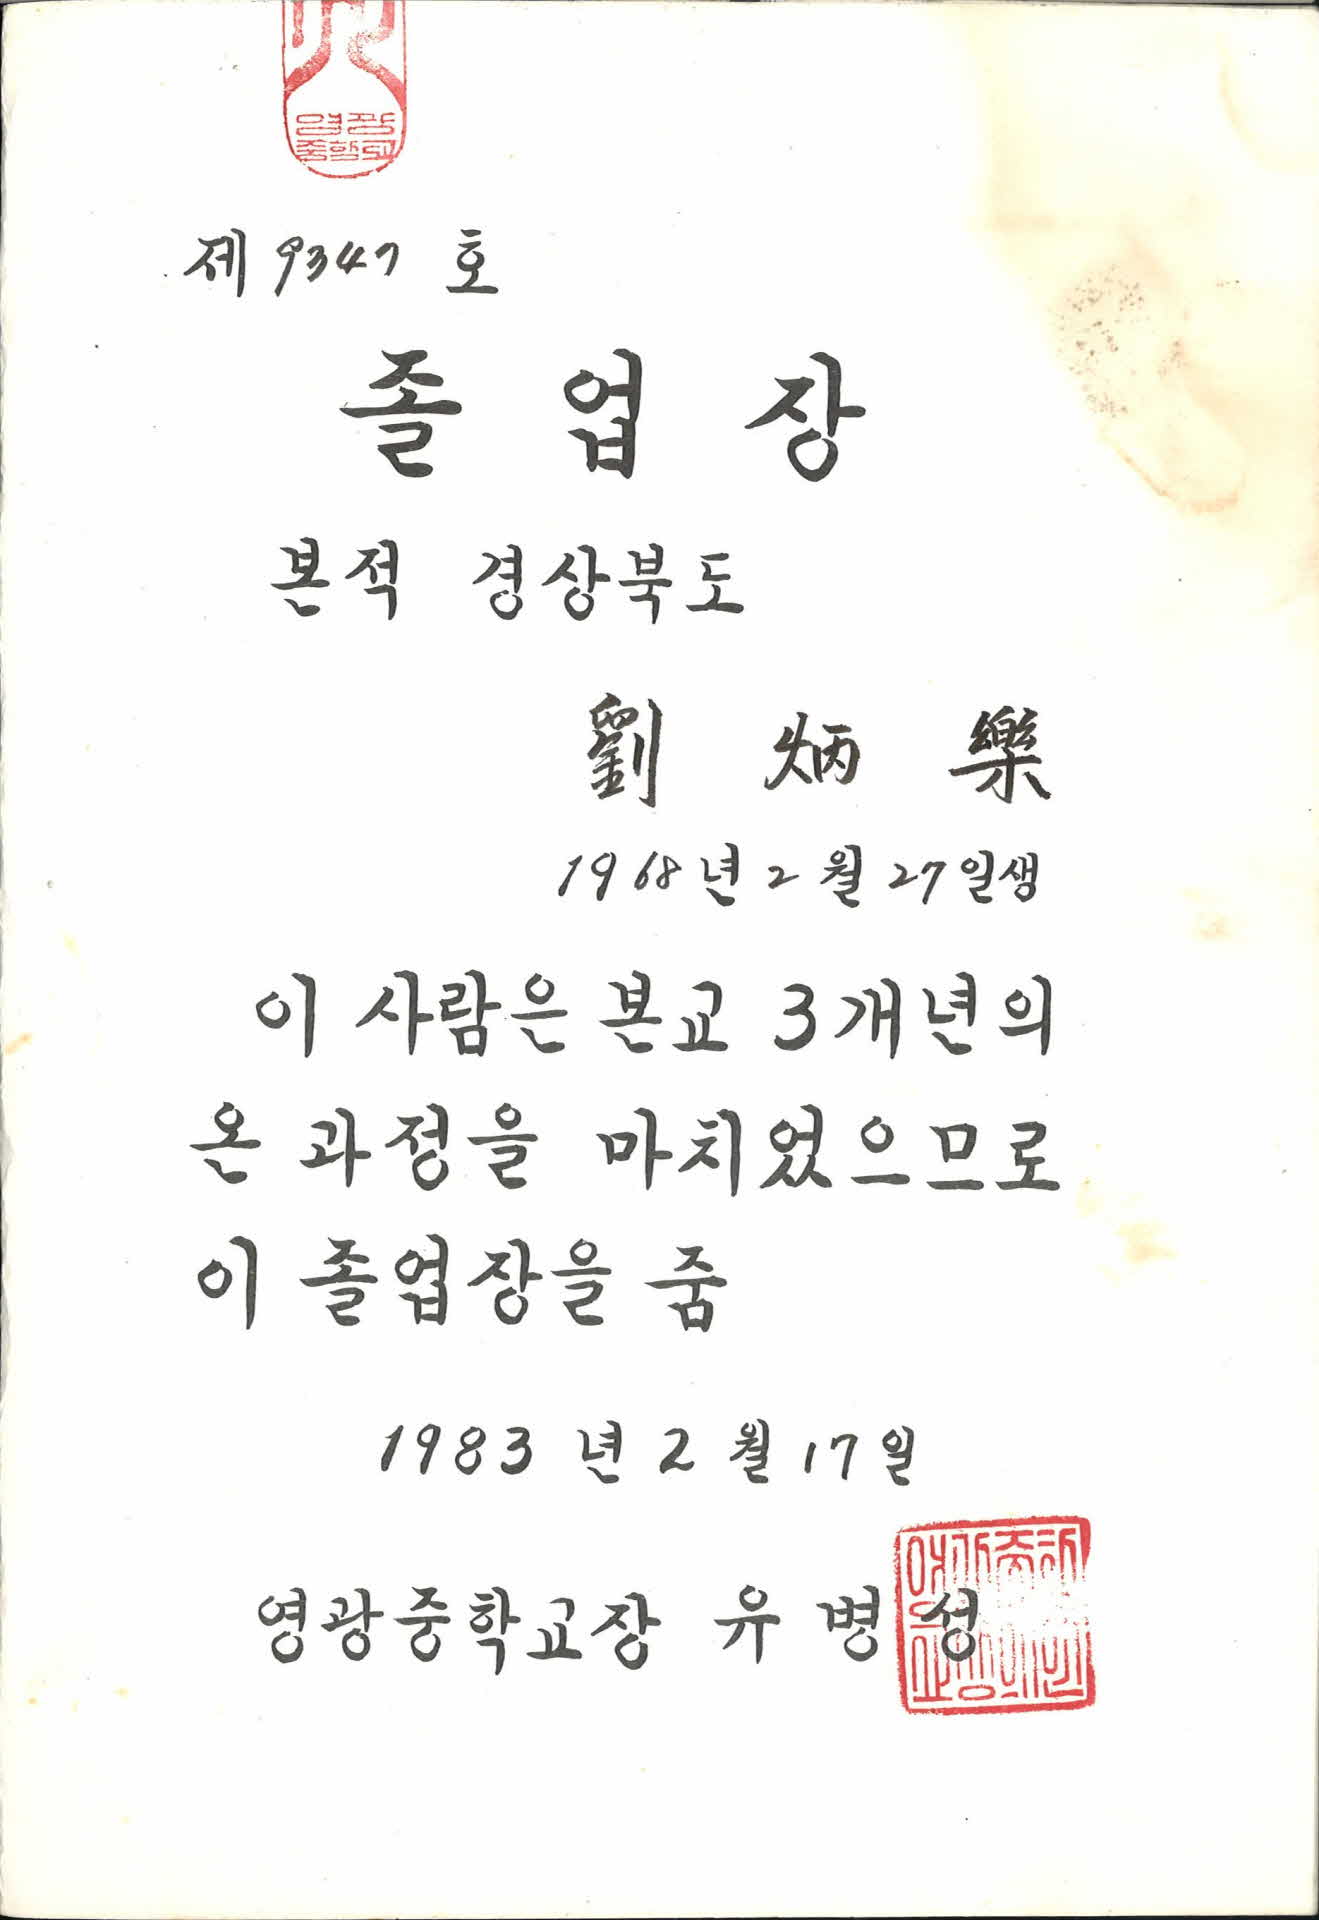 영광
중학교
제 9347 호
졸업장
본적 경상북도
劉炳樂
1968년 2월 27일생
이 사람은 본교 3개년의
온 과정을 마치었으므로
이 졸업장을 줌
1983년 2월 17일
영광중학교장 유병성